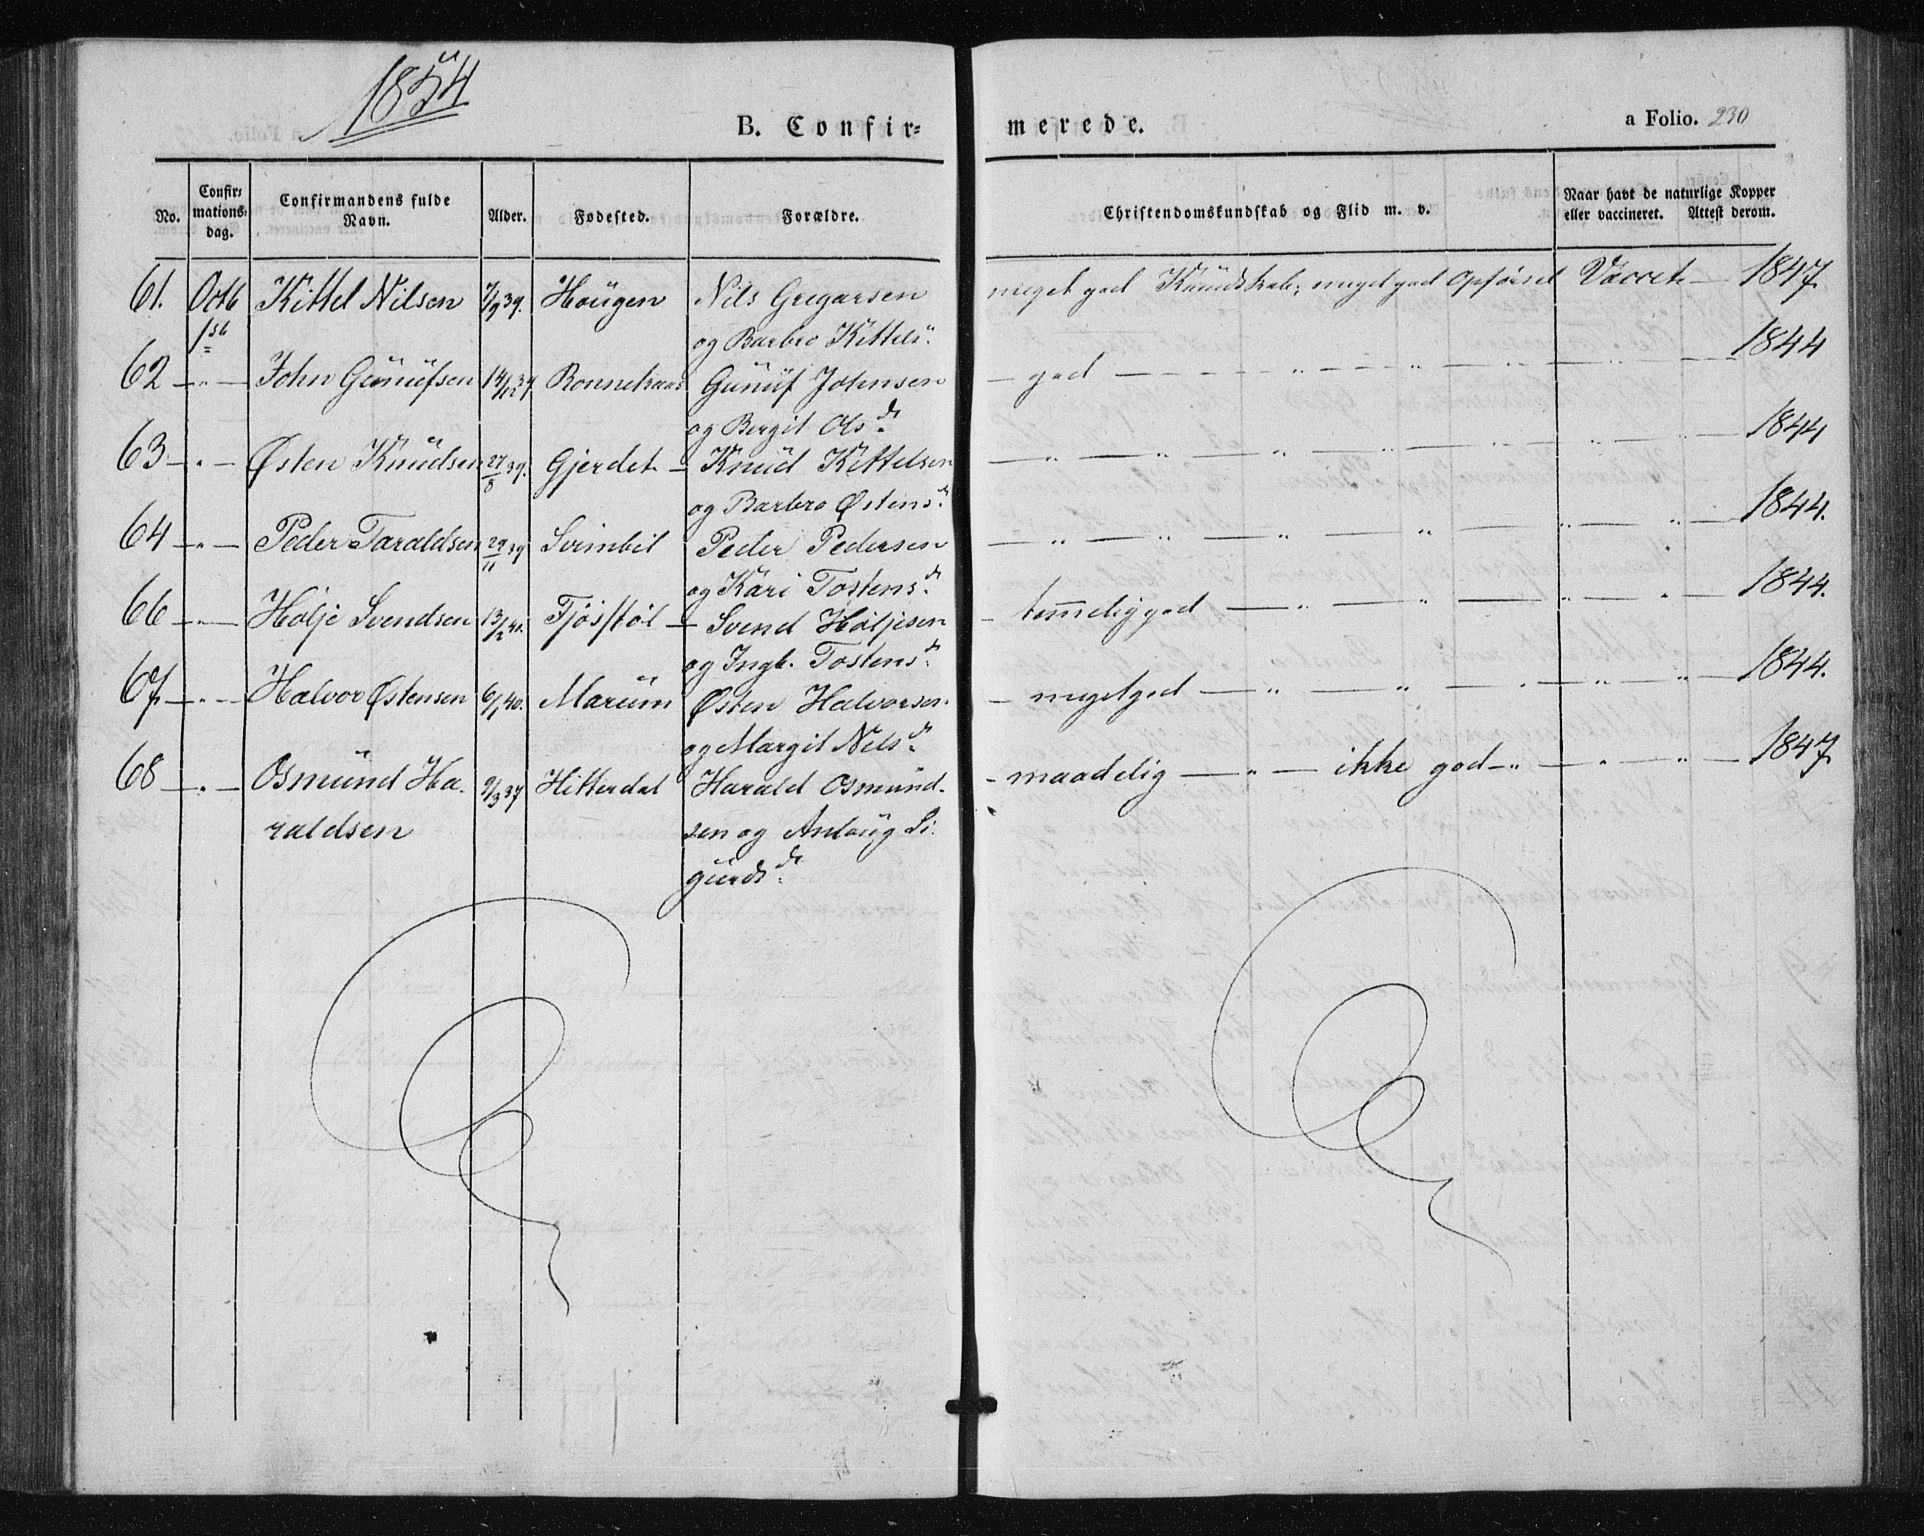 1854
B. Confirmerede.
a Folio. 230
No. Confirmationsdag. Confirmandens fulde Navn. Alder. Fødested. Forældre. Christendomskundskab og Flid m. v. Naar havt de naturlige Kopper eller vaccineret. Attest derom.
61. Octb Kittel Nilsen 7/9 39. Haugen Nils Gregarsen meget god Kundskab; meget god Opførsel Vaccet — 1847.
1st og Barbro Kittels:
62 — " — John Gunufsen 14/12 37 Gunuf Johnsen — god — " — " — " — " — 1844
og Bergit Ols d:
63 — " — Østen Knudsen 27/8 39. Gjerdet — Knud Kittelsen — " — " — " — " — " — " — 1844
og Barbro Østens d:
64 — " — Peder Taraldsen 29/11 39 Svimbil Peder Pedersen — " — " — " — " — " — " — 1844.
og Kari Tostens d:
66 — " — Holje Svendsen 13/2 40. Tjøsstøl — Svend Holjesen — temelig god — " — " — " — " — 1844.
og Ingb. Tostens d:
67 — " — Halvor Østensen 6/1 40. Marum Østen Halvorsen — meget god — " — " — " — " — " — 1844.
og Margit Nels d:
68 — " — Osmund Ha- 9/3 37 Hitterdal Harald Osmund- — maadelig — " — ikke god — " — " — " — 1847
raldsen sen og Anlaug Si-
gurds d: